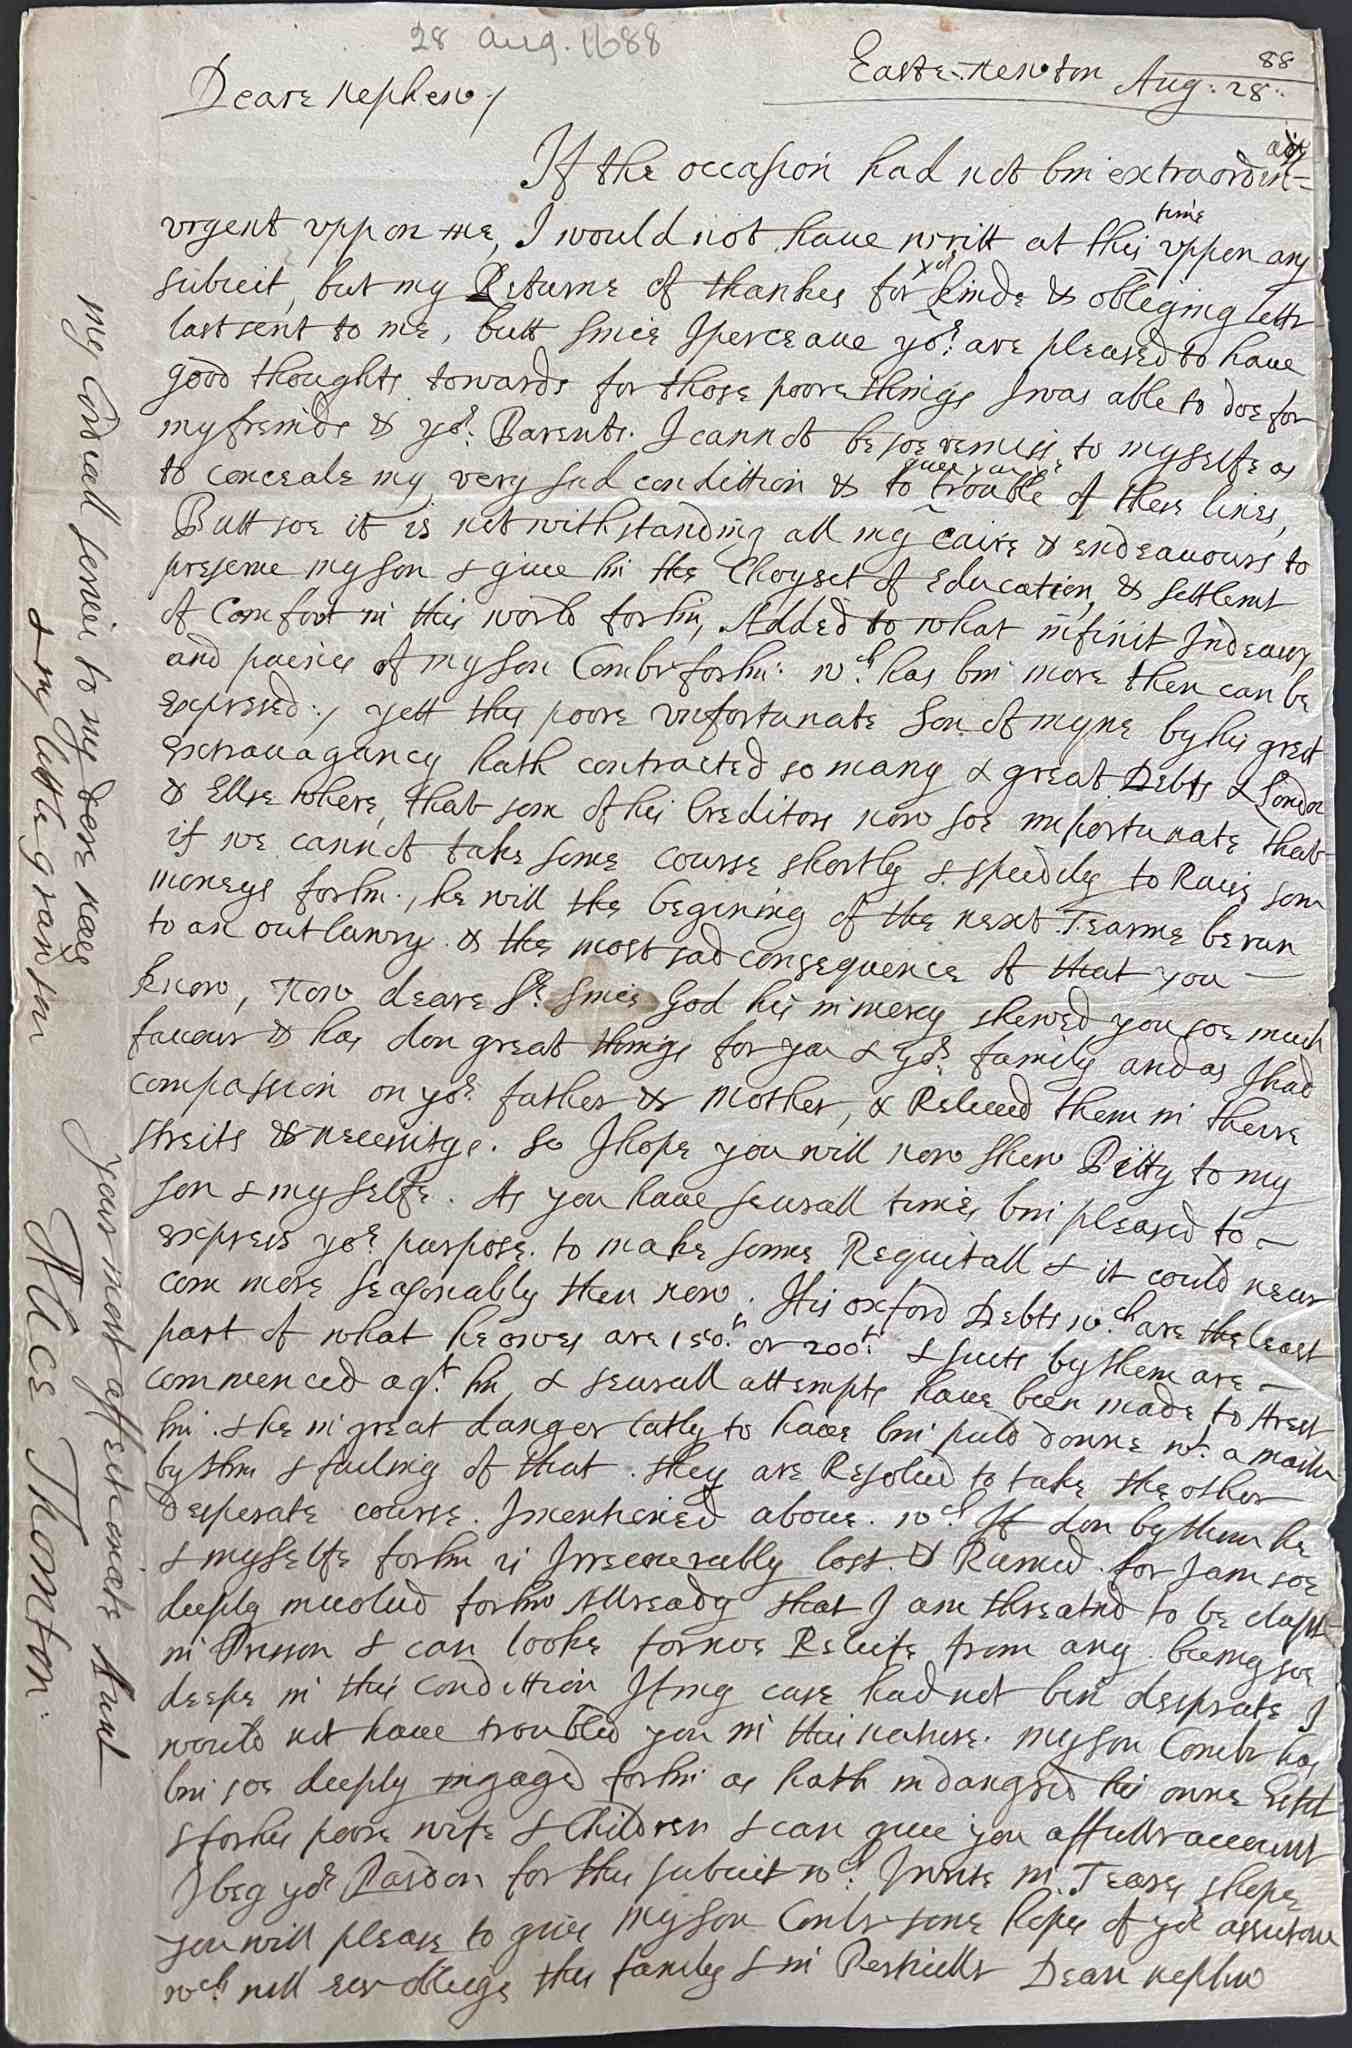 28 Aug. 1688
88
East-Newton Aug: 28:
Deare Nephew,
If the occasion had not bin extraordin-
ary
urgent uppon me, I would not have writt at this time uppon any
subieit, but my Returne of thankes for yor kinde & obleging lettr
last sent to me, butt since I perceave yor: are pleased to have
good thoughts towards for those poore things I was able to doe for
my freinds & yor: Parents. I cannot be soe remise to my selfe as
to conceale my very sad condittion & to give you ye trouble of these lines,
Butt soe it is notwithstanding all my Caire & endeavours to
preserve my son & give him the Choysest of Education, & settlemt
of Comfort in this world for him, Added to what infinit Indeavrs
and paines of my son Combr for him: wch: has bin more then can be
expresed:, yett this poore unfortunate son of myne by his great
extravagancy hath contracted so many & great Debts & London
& Ellse where, that som of his Creditors now soe importunate that
if we cannot take some course shortly & speedily to Raise som
moneys for him, he will the begining of the next Tearme be run
to an outlawry & the most sad consequence of that you —
know, Now deare Sr: since God his in mercy shewed you soe much
favour & has don great things for you & yor: family and as I had
compassion on yor: father & Mother, & Releved them in theire
streits & necessitys. So I hope you will now shew Pitty to my
son & my selfe. As you have severall times bin pleased to —
express yor: purpose. to make some Requitall & it could never
com more seasonably then now. His oxford Debts wch: are the least
part of what he owes are 150: or 200: & suits by them are —
commenced agt: him, & severall attempts have been made to Arest
him. & he in great danger latly to have bin puld downe wt: a
by them & failing of that. they are Resolved to take the other
desperate course. I mentioned above. wch: If don by them he
& my selfe for him is Irrecoverably lost. & Ruined. for I am soe
deeply involved for him Allready that I am threatnd to be clapt
in Prison & can looke for noe Releife from any being soe
deepe in this condittion If my case had not bin desprate I
would not have troubled you in this nature. my son Combr has
bin soe deeply ingaged for him as hath indangred his owne Estat
& for his poore wife & Children & can give you a fullr account
I beg yor: Pardon for this subieit wch: I write in Teares, I hope
you will please to give my son Combr some hopes of yor assistane
wch: will ever obleige this family & in Perticullr Deare nephew
your most affectionate Aunt
Alice Thornton:
my Cordiall servis to my deare neece
& my little grandson